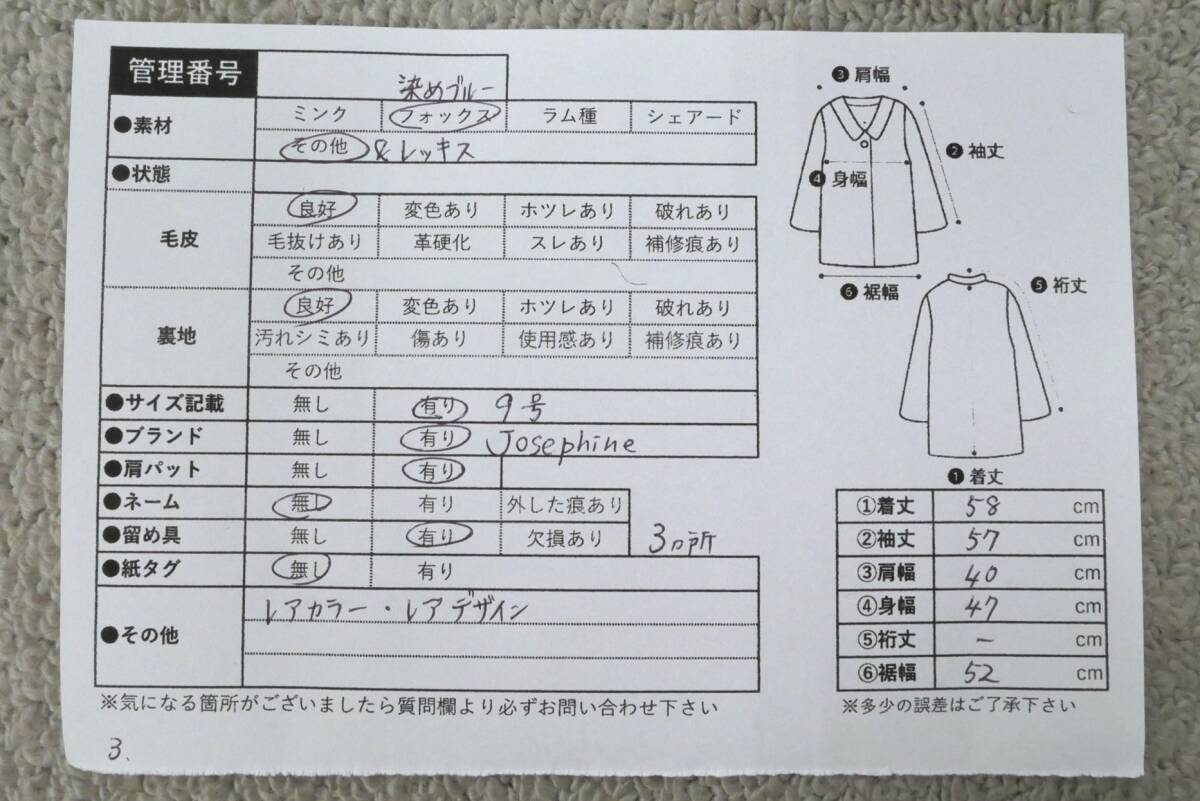 管理番号
染めブルー
●素材 ミンク フォックス ラム種 シェアード
その他 & レッキス
●状態
毛皮 良好 変色あり ホツレあり 破れあり
毛抜けあり 革硬化 スレあり 補修痕あり
その他
裏地 良好 変色あり ホツレあり 破れあり
汚れシミあり 傷あり 使用感あり 補修痕あり
その他
●サイズ記載 無し 有り 9号
●ブランド 無し 有り Josephine
●肩パット 無し 有り
●ネーム 無し 有り 外した痕あり
●留め具 無し 有り 欠損あり 3ヵ所
●紙タグ 無し 有り
●その他 レアカラー・レアデザイン
※気になる箇所がございましたら質問欄より必ずお問い合わせ下さい
3.
❸肩幅
❷袖丈
❹身幅
❻裾幅
❺裄丈
❶着丈
①着丈 58 cm
②袖丈 57 cm
③肩幅 40 cm
④身幅 47 cm
⑤裄丈 - cm
⑥裾幅 52 cm
※多少の誤差はご了承下さい